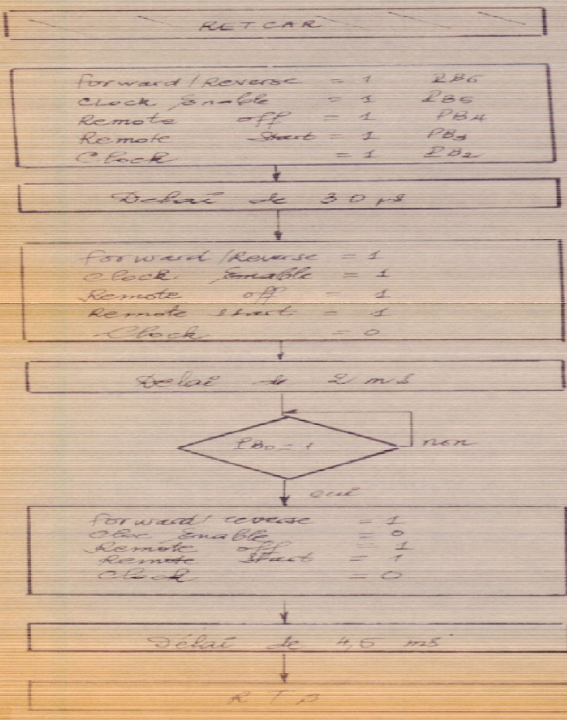 RETCAR
Forward / Reverse = 1 PB6
Clock Enable = 1 PB5
Remote off = 1 PB4
Remote Start = 1 PB3
Clock = 1 PB2
Délai de 30 µs
Forward / Reverse = 1
Clock Enable = 1
Remote off = 1
Remote start = 1
Clock = 0
Délai de 2 ms
PB0 = 1
non
oui
Forward / reverse = 1
Cloc Enable = 0
Remote off = 1
Remote Start = 1
Clock = 0
Délai de 4,5 ms